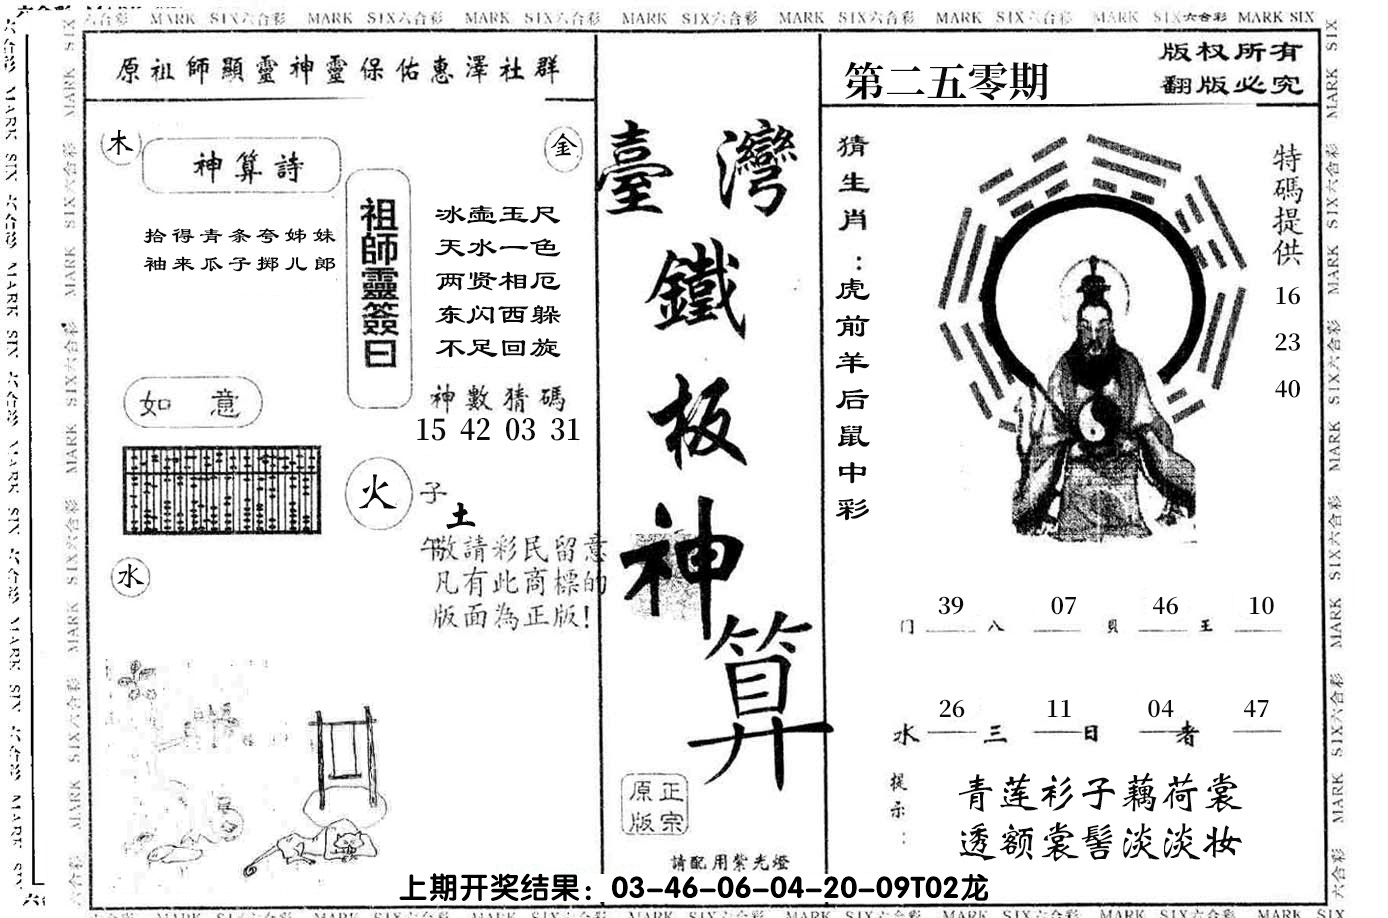 MARK SIX六合彩 MARK SIX六合彩 MARK SIX六合彩 MARK SIX六合彩 MARK SIX六合彩 MARK SIX六合彩 MARK SIX六合彩 MARK SIX
原祖師顯靈神靈保佑惠澤社群
木
金
神算詩
拾得青条夸姊妹
袖来瓜子掷儿郎
祖師靈簽曰
冰壶玉尺
天水一色
两贤相厄
东闪西躲
不足回旋
神數猜碼
15 42 03 31
如 意
火
子
土
午
水
敬請彩民留意
凡有此商標的
版面為正版!
臺灣
鐵
板
神
算
正宗
原版
請配用紫光燈
第二五零期
版权所有
翻版必究
猜生肖：虎前羊后鼠中彩
特碼提供
16
23
40
39 07 46 10
门 八 贝 王
26 11 04 47
水 三 日 者
提示：
青莲衫子藕荷裳
透额裳髻淡淡妆
上期开奖结果：03-46-06-04-20-09T02龙